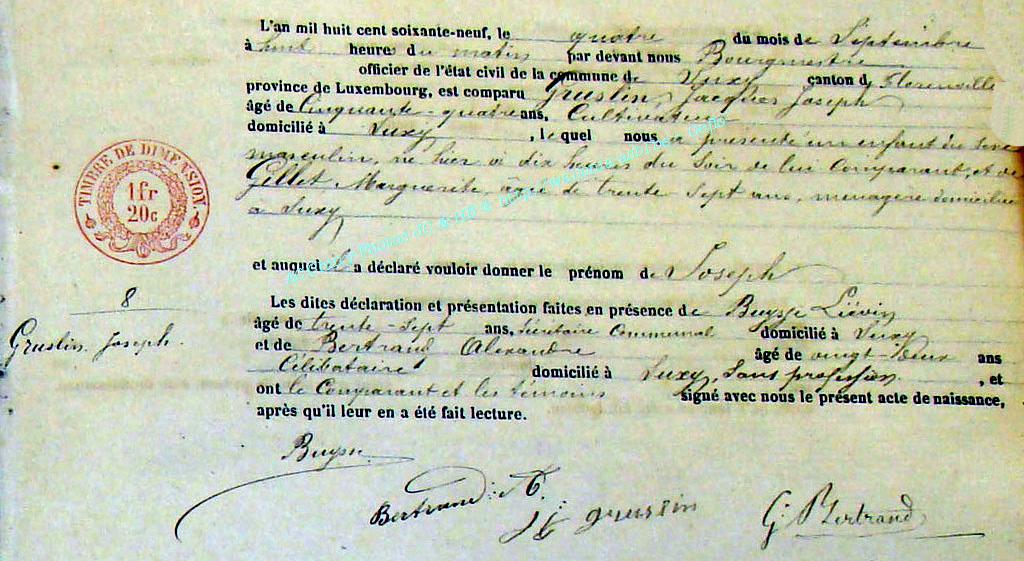 L'an mil huit cent soixante-neuf, le quatre du mois de Septembre
à huit heures du matin par devant nous Bourgmestre
officier de l'état civil de la commune de Suxy canton d Florenville
province de Luxembourg, est comparu Gruslin, Jacques Joseph
âgé de Cinquante-quatre ans, Cultivateur
domicilié à Suxy, lequel nous a présenté un enfant du sexe
masculin, né hier à dix heures du Soir de lui Comparant, et de
Gillet Marguerite, âgée de trente Sept ans, menagère domiciliée
à Suxy
TIMBRE DE DIMENSION
1 fr
20 c
et auquel il a déclaré vouloir donner le prénom de Joseph
8
Gruslin Joseph.
Les dites déclaration et présentation faites en présence de Buysse Liévin
âgé de trente-Sept ans, Secrétaire Communal domicilié à Suxy
et de Bertrand Alexandre âgé de vingt-deux ans
Célibataire domicilié à Suxy, Sans profession, et
ont le Comparant et les témoins signé avec nous le présent acte de naissance,
après qu'il leur en a été fait lecture.
Buysse
Bertrand A.
gruslin
G. Bertrand